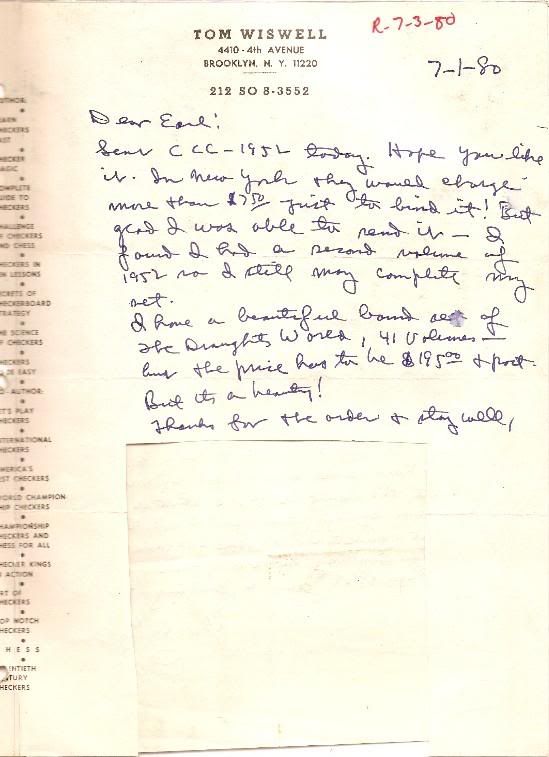 TOM WISWELL
4410 - 4th AVENUE
BROOKLYN, N. Y. 11220
212 SO 8-3552
R-7-3-80
7-1-80
Dear Earl:
Sent CCC-1952 today. Hope you like
it. In New York they would charge
more than $7.50 just to bind it! But
glad I was able to send it — I
found I had a second volume of
1952 so I still may complete my
set.
I have a beautiful bound set of
The Draughts World, 41 Volumes —
but the price has to be $195.00 + post.
But its a beauty!
Thanks for the order + stay well,
UTHOR:
EARN
HECKERS
AST
HECKER
AGIC
OMPLETE
UIDE TO
HECKERS
HALLENGE
F CHECKERS
ND CHESS
HECKERS IN
N LESSONS
ECRETS OF
HECKERBOARD
TRATEGY
HE SCIENCE
F CHECKERS
HECKERS
DE EASY
O-AUTHOR:
ET'S PLAY
HECKERS
TERNATIONAL
HECKERS
MERICA'S
EST CHECKERS
ORLD CHAMPION
HIP CHECKERS
HAMPIONSHIP
HECKERS AND
HESS FOR ALL
HECKER KINGS
ACTION
RT OF
HECKERS
OP NOTCH
HECKERS
H E S S
ENTIETH
TURY
HECKERS